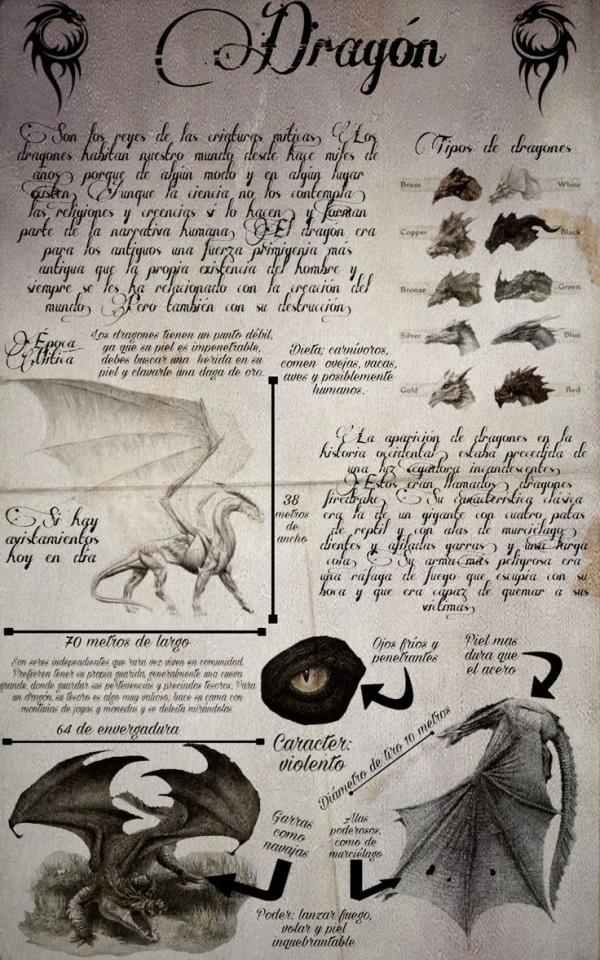 Dragón
Son los reyes de las criaturas míticas, Los
dragones habitan nuestro mundo desde hace miles de
años, porque de algún modo y en algún lugar
existen. Aunque la ciencia no los contempla
las religiones y creencias si lo hacen, y forman
parte de la narrativa humana, El dragón era
para los antiguos una fuerza primigenia más
antigua que la propia existencia del hombre y
siempre se les ha relacionado con la creación del
mundo, Pero también con su destrucción,
Tipos de dragones
Brass
White
Copper
Black
Bronze
Green
Silver
Blue
Gold
Red
Época
Mítica
Los dragones tienen un punto débil,
ya que su piel es impenetrable,
debes buscar una herida en su
piel y clavarle una daga de oro.
Dieta; carnívoros,
comen ovejas, vacas,
aves y posiblemente
humanos.
38
metros
de
ancho
Si hay
avistamientos
hoy en dia
La aparición de dragones en la
historia occidental, estaba precedida de
una luz cegadora incandescentes,
Estos eran llamados dragones
firedrake, Su característica clásica
era la de un gigante con cuatro patas
de reptil y con alas de murciélago,
dientes y afiladas garras, y una larga
cola, Su arma más peligrosa era
una ráfaga de fuego que escupía con su
boca y que era capaz de quemar a sus
víctimas,
70 metros de largo
Son seres independientes que rara vez viven en comunidad.
Prefieren tener su propia guarida, generalmente una cueva
grande, donde guardar sus pertenencias y preciados tesoros. Para
un dragón, su tesoro es algo muy valioso, hace su cama con
montañas de joyas y monedas y se deleita mirándolas.
64 de envergadura
Ojos fríos y
penetrantes
Piel mas
dura que
el acero
Caracter:
violento
Diámetro de tiro 10 metros
Garras
como
navajas
Alas
poderosos,
como de
murciélago
Poder: lanzar fuego,
volar y piel
inquebrantable